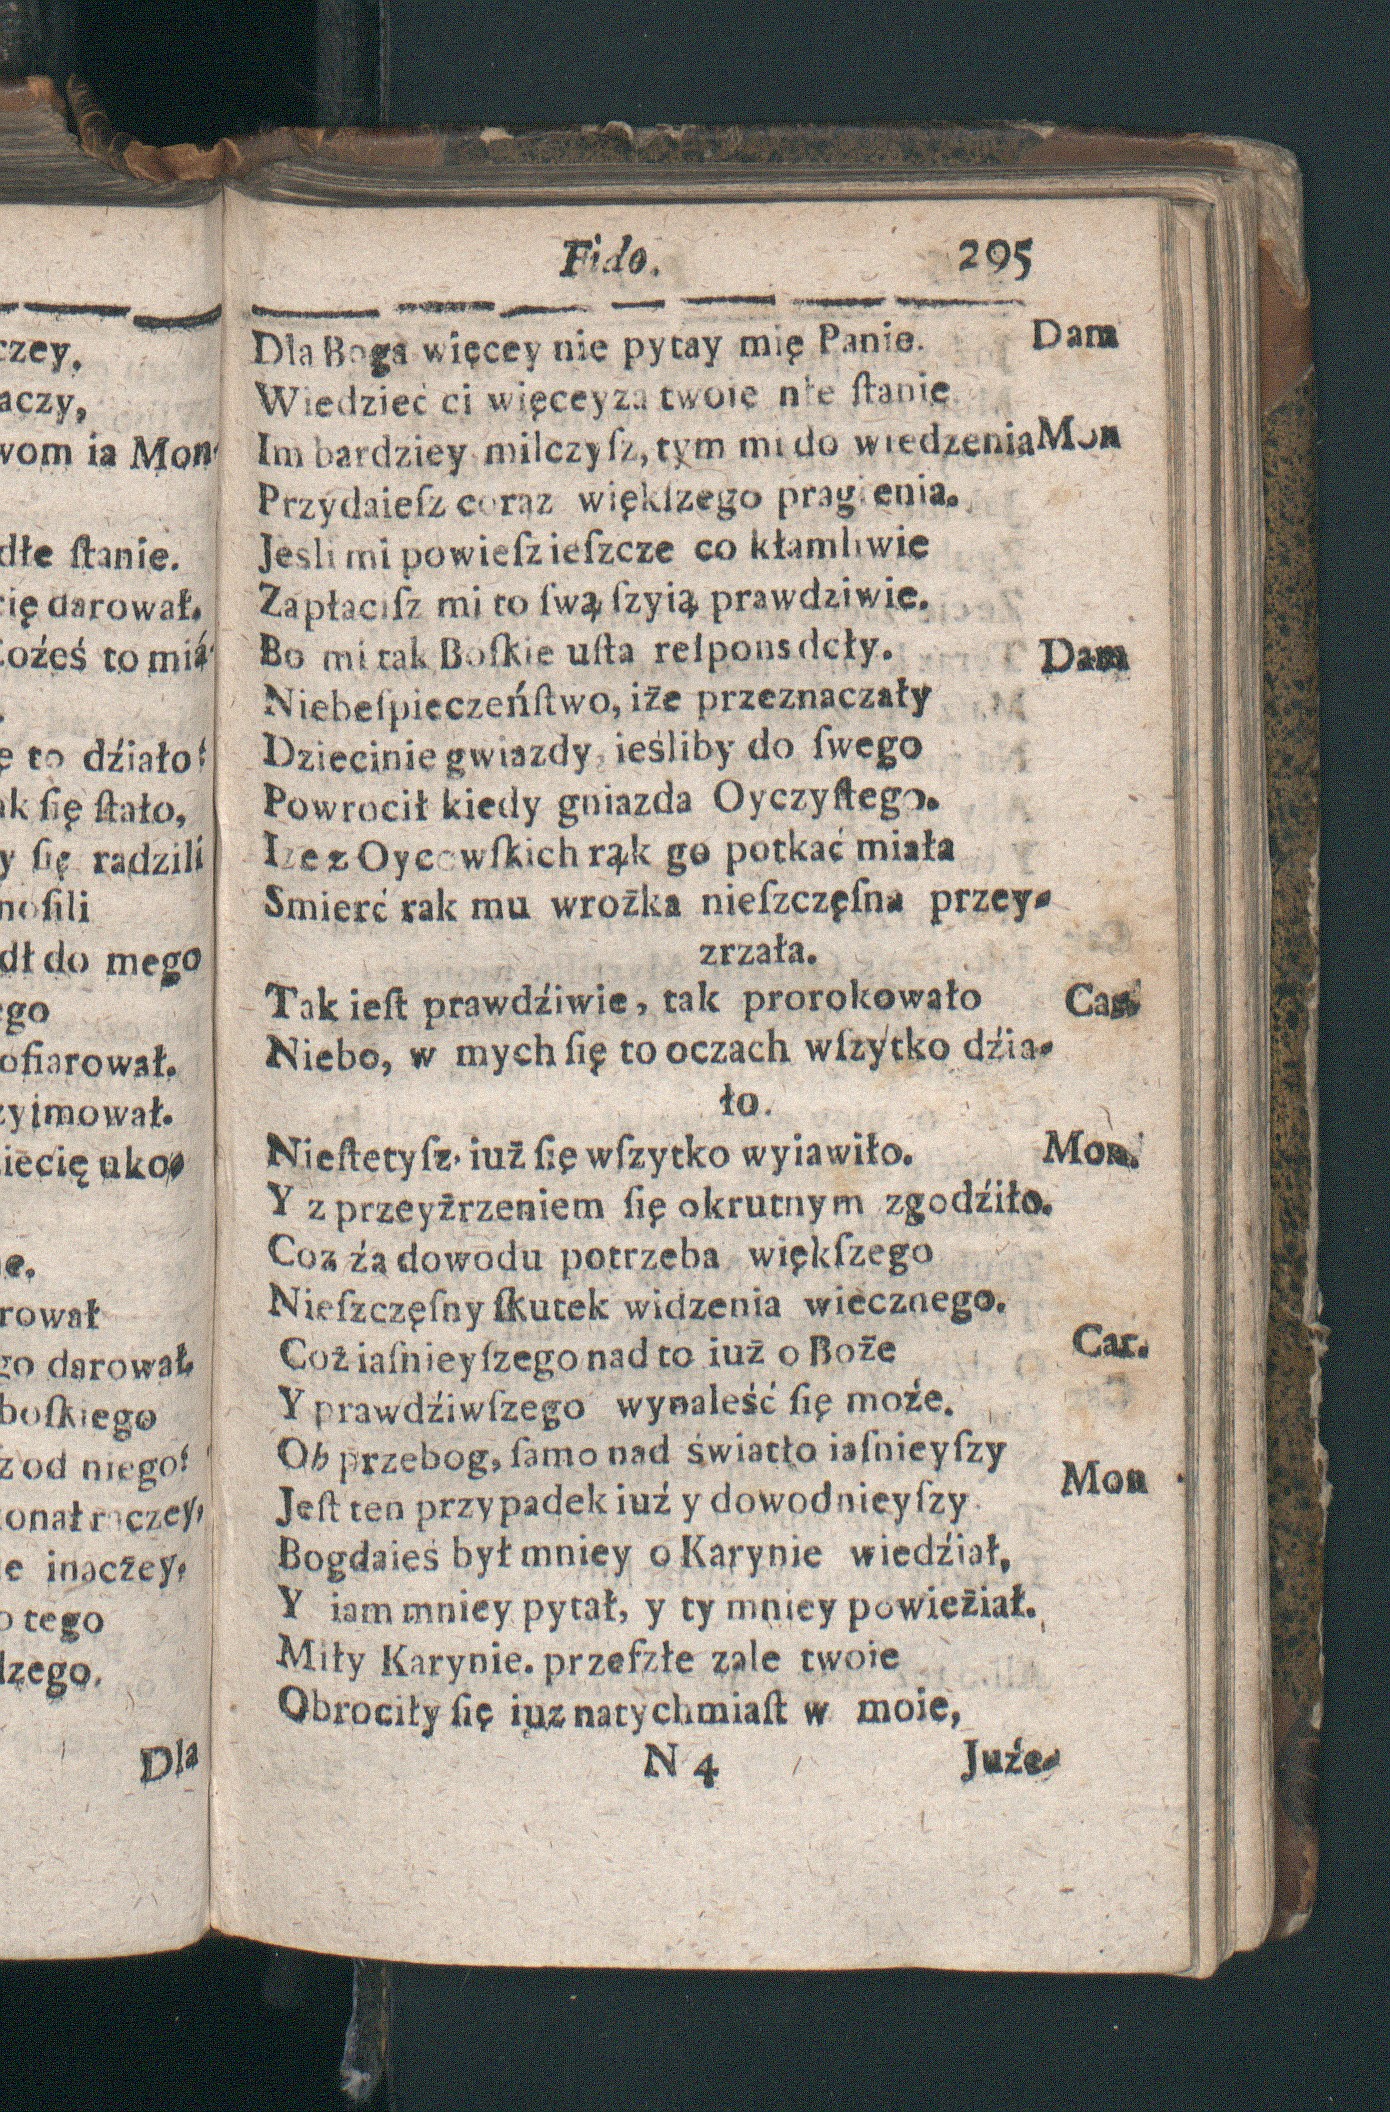 czey.
aczy,
wom ia Mon
dłe ſtanie.
cię darował.
Cożeś to miá
ę to dźiało
ak ſię ſtało,
y ſię radzili
noſili
dł do mego
ego
ofiarował.
zyimował.
iecię uko
e.
rował
go darował.
boſkiego
z od niego
konał raczey,
ie inaczey,
o tego
dzego.
Dla
Fido. 295
Dla Boga więcey nie pytay mię Panie. Dam
Wiedzieć ci więceyza twoie nie ſtanie
Im bardziey milczyſz, tym mi do wiedzenia Mon
Przydaieſz coraz więkſzego pragienia.
Jesli mi powieſz ieſzcze co kłamliwie
Zapłaciſz mi to ſwą ſzyią prawdziwie.
Bo mi tak Boſkie uſta reſpons dcły. Dam
Niebeſpieczeńſtwo, iże przeznaczały
Dziecinie gwiazdy, ieśliby do ſwego
Powrocił kiedy gniazda Oyczyſtego.
Ize z Oycowſkich rąk go potkać miała
Smierć rak mu wrożka nieſzczęſna przey-
zrzała.
Tak ieſt prawdźiwie, tak prorokowało Cag.
Niebo, w mych ſię to oczach wſzytko dźia-
ło.
Nieſtetyſz, iuż ſię wſzytko wyiawiło. Mon.
Y z przeyżrzeniem ſię okrutnym zgodźiło.
Coz źa dowodu potrzeba więkſzego
Nieſzczęſny ſkutek widzenia wiecznego.
Coż iaſnieyſzego nad to iuż o Boże Car.
Y prawdźiwſzego wynaleść ſię może.
Oh przebog, ſamo nad światło iaſnieyſzy
Jeſt ten przypadek iuź y dowodnieyſzy Mon
Bogdaieś był mniey o Karynie wiedźiał,
Y iam mniey pytał, y ty mniey powieżiał.
Miły Karynie. przeſzłe zale twoie
Obrociły ſię iuz natychmiaſt w moie,
N 4 Juźe-